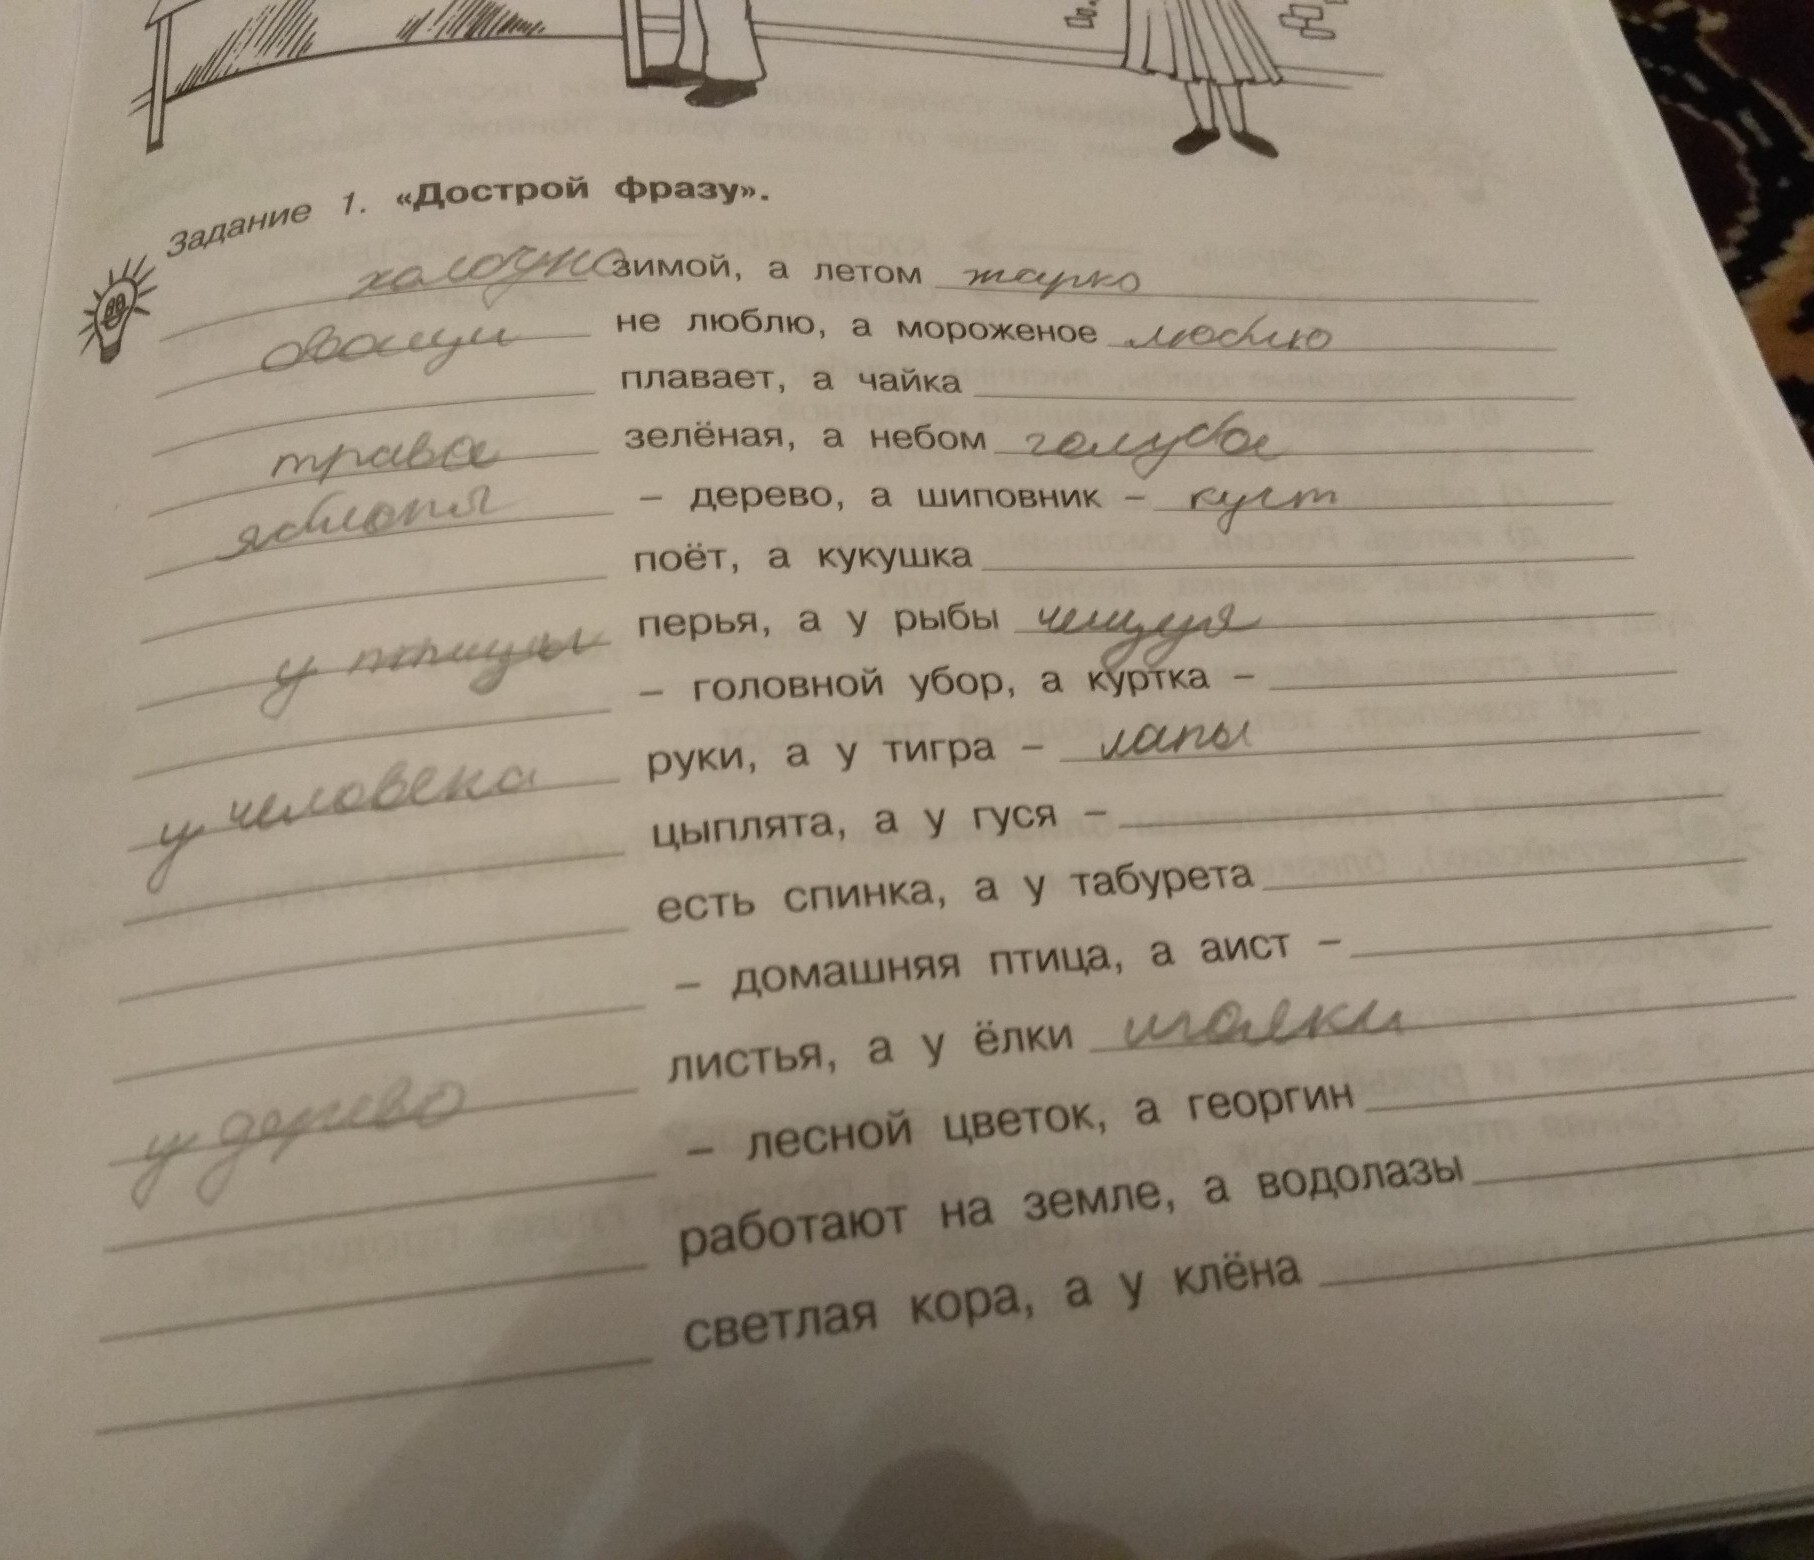 Задание 1. «Дострой фразу».
холодно зимой, а летом жарко
овощи не люблю, а мороженое люблю
плавает, а чайка
трава зелёная, а небом голубое
яблоня – дерево, а шиповник – куст
поёт, а кукушка
у птицы перья, а у рыбы чешуя
– головной убор, а куртка –
у человека руки, а у тигра – лапы
цыплята, а у гуся –
есть спинка, а у табурета
– домашняя птица, а аист –
у дерево листья, а у ёлки иголки
– лесной цветок, а георгин
работают на земле, а водолазы
светлая кора, а у клёна